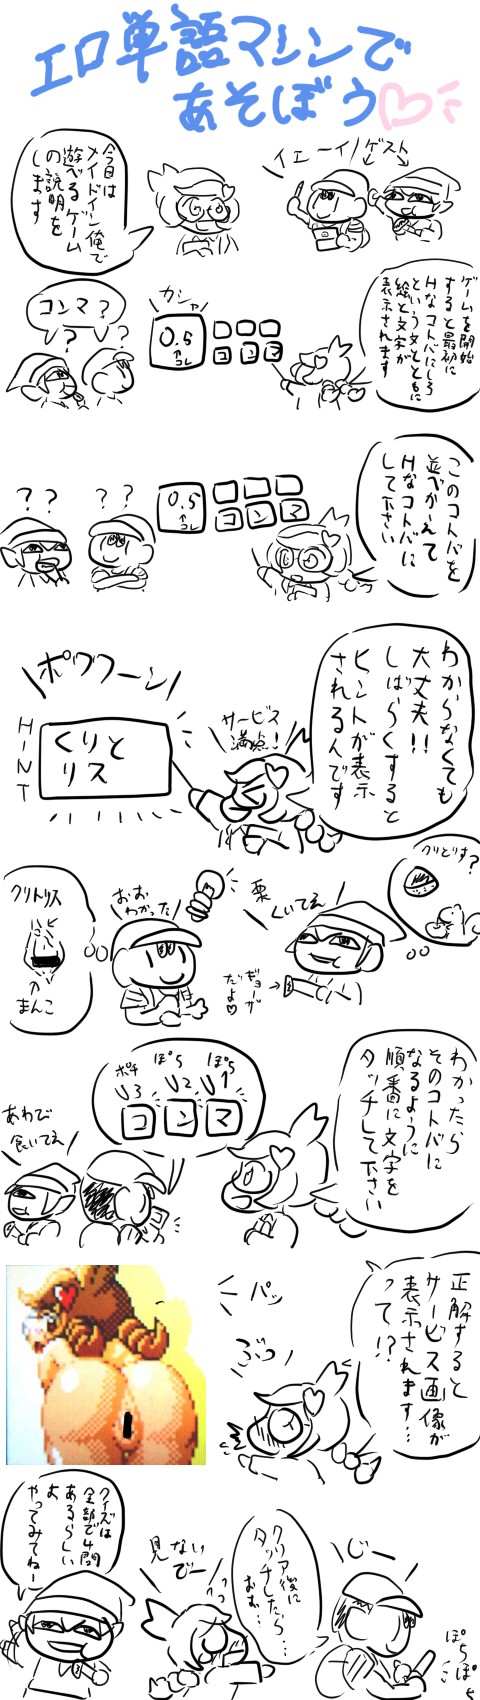 エロ単語マシンで
あそぼう♡
今日は
メイドイン俺で
遊べるゲーム
の説明を
します
イエーイ/
ゲスト
ゲームを開始
すると最初に
Hなコトバにしろ
という文とともに
絵と文字が
表示されます
カシャ
0.5
↑コレ
コンマ
コンマ?
?
?
このコトバを
並べかえて
Hなコトバに
して下さい
0.5
↑コレ
コンマ
??
??
わからなくても
大丈夫!!
しばらくすると
ヒントが表示
されるんです
サービス
満点!
ポワワーン
HINT
くりと
リス
クリとリス?
栗
くいてえ
ギョーザ
だよ♡
→
おお
わかった
クリトリス
↑
まんこ
わかったら
そのコトバに
なるように
順番に文字を
タッチして下さい
ポチ
3
ぽち
2
ぽち
1
コンマ
あわび
食いてえ
正解すると
サービス画像が
表示されます…
って!?
パッ
ぶっ
じー
ぽちぽち
クリア後に
タッチしたら…
おお…
見ない
でー
クイズは
全部で4問
あるらしい
よ
やってみてねー